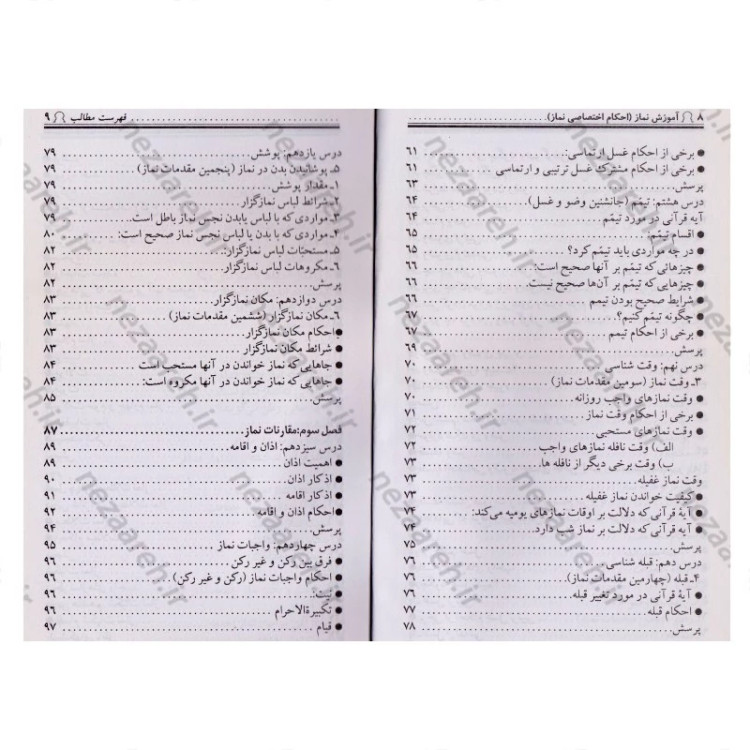 ۸ آموزش نماز (احکام اختصاصی نماز)
● برخی از احکام غسل ارتماسی: ۶۱
● برخی از احکام مشترک غسل ترتیبی و ارتماسی ۶۱
پرسش ۶۳
درس هشتم: تیمّم (جانشین وضو و غسل) ۶۴
آیه قرآنی در مورد تیمّم ۶۴
● اقسام تیمّم: ۶۵
● در چه مواردی باید تیمّم کرد؟ ۶۵
● چیزهائی که تیمّم بر آنها صحیح است: ۶۶
● چیزهایی که تیمّم بر آن‌ها صحیح نیست. ۶۶
● شرایط صحیح بودن تیمم ۶۶
● چگونه تیمّم کنیم؟ ۶۷
● برخی از احکام تیمم ۶۷
پرسش ۶۹
درس نهم: وقت شناسی ۷۰
۳ـ وقت نماز (سومین مقدمات نماز) ۷۰
● وقت نمازهای واجب روزانه ۷۰
● برخی از احکام وقت نماز ۷۱
● وقت نمازهای مستحبی: ۷۲
الف) وقت نافله نمازهای واجب ۷۲
ب) وقت برخی دیگر از نافله ها. ۷۳
وقت نماز غفیله ۷۳
● کیفیت خواندن نماز غفیله ۷۳
● آیۀ قرآنی که دلالت بر اوقات نمازهای یومیه می‌کند: ۷۴
● آیه قرآنی که دلالت بر نماز شب دارد. ۷۴
پرسش ۷۵
درس دهم: قبله شناسی ۷۶
۴ـ قبله (چهارمین مقدمات نماز) ۷۶
● آیۀ قرآنی در مورد تغییر قبله. ۷۶
● احکام قبله ۷۷
پرسش ۷۸
فهرست مطالب ۹
درس یازدهم: پوشش ۷۹
۵ـ پوشانیدن بدن در نماز (پنجمین مقدمات نماز) ۷۹
۱ـ مقدار پوشش ۷۹
۲ـ شرائط لباس نمازگزار ۷۹
۳ـ مواردی که با لباس یابدن نجس نماز باطل است ۷۹
۴ـ مواردی که با بدن یا لباس نجس نماز صحیح است: ۸۰
۵ـ مستحبّات لباس نمازگزار: ۸۲
۶ـ مکروهات لباس نمازگزار ۸۲
پرسش ۸۲
درس دوازدهم: مکان نمازگزار ۸۳
۶ـ مکان نمازگزار (ششمین مقدمات نماز) ۸۳
● احکام مکان نمازگزار ۸۳
● شرائط مکان نمازگزار ۸۳
● جاهایی که نماز خواندن در آنها مستحب است ۸۴
● جاهایی که نماز خواندن در آنها مکروه است: ۸۴
پرسش ۸۵
فصل سوم:مقارنات نماز ۸۷
درس سیزدهم: اذان و اقامه ۸۹
● اهمیت اذان ۸۹
● اذکار اذان ۹۰
● اذکار اقامه ۹۱
● احکام اذان و اقامه ۹۲
پرسش ۹۴
درس چهاردهم: واجبات نماز ۹۵
● فرق بین رکن و غیر رکن ۹۶
● احکام واجبات نماز (رکن و غیر رکن) ۹۶
● نیت: ۹۶
● تکبیرةالاحرام ۹۶
● قیام ۹۷
nezaareh.ir